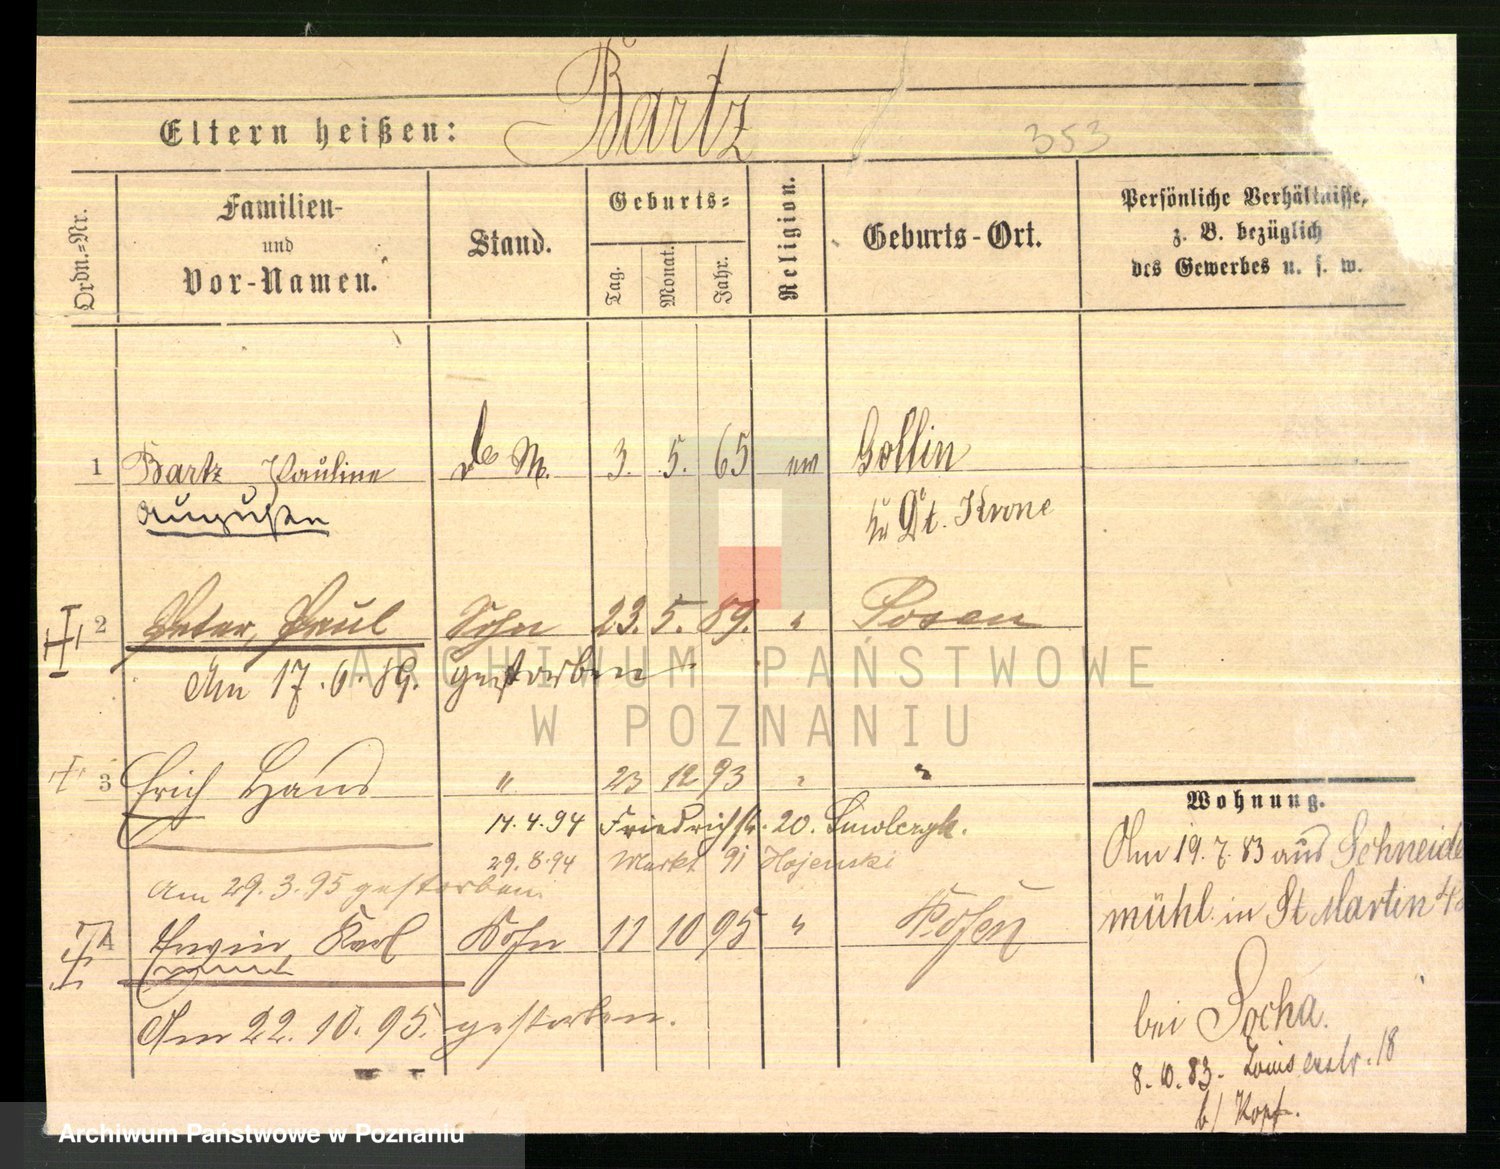 Bartz
Eltern heißen:
353
Ordn.-Nr.
Familien-
und
Vor-Namen.
Stand.
Geburts-
Tag.
Monat.
Jahr.
Religion.
Geburts-Ort.
Persönliche Verhältnisse,
z. B. bezüglich
des Gewerbes u. s. w.
1 Bartz Pauline d M. 3. 5. 65 Gollin
Augusten
zu Dt. Krone
2 Peter, Paul Sohn 23. 5. 89. " Posen
Am 17. 6. 89. gestorben
3 Erich Hans " 23 12 93 " "
17.4.94 Friedrichstr. 20.
29.8.94 Markt 91
Am 29.3.95 gestorben.
4 Erwin Karl Sohn 11 10 95 " Posen
Am 22. 10. 95. gestorben.
Wohnung.
Am 19. 7. 83 aus Schneide
mühl in St Martin
bei Socha.
8. 10. 83. Louisenstr. 18
b/ Kopf.
ARCHIWUM PAŃSTWOWE
W POZNANIU
Archiwum Państwowe w Poznaniu